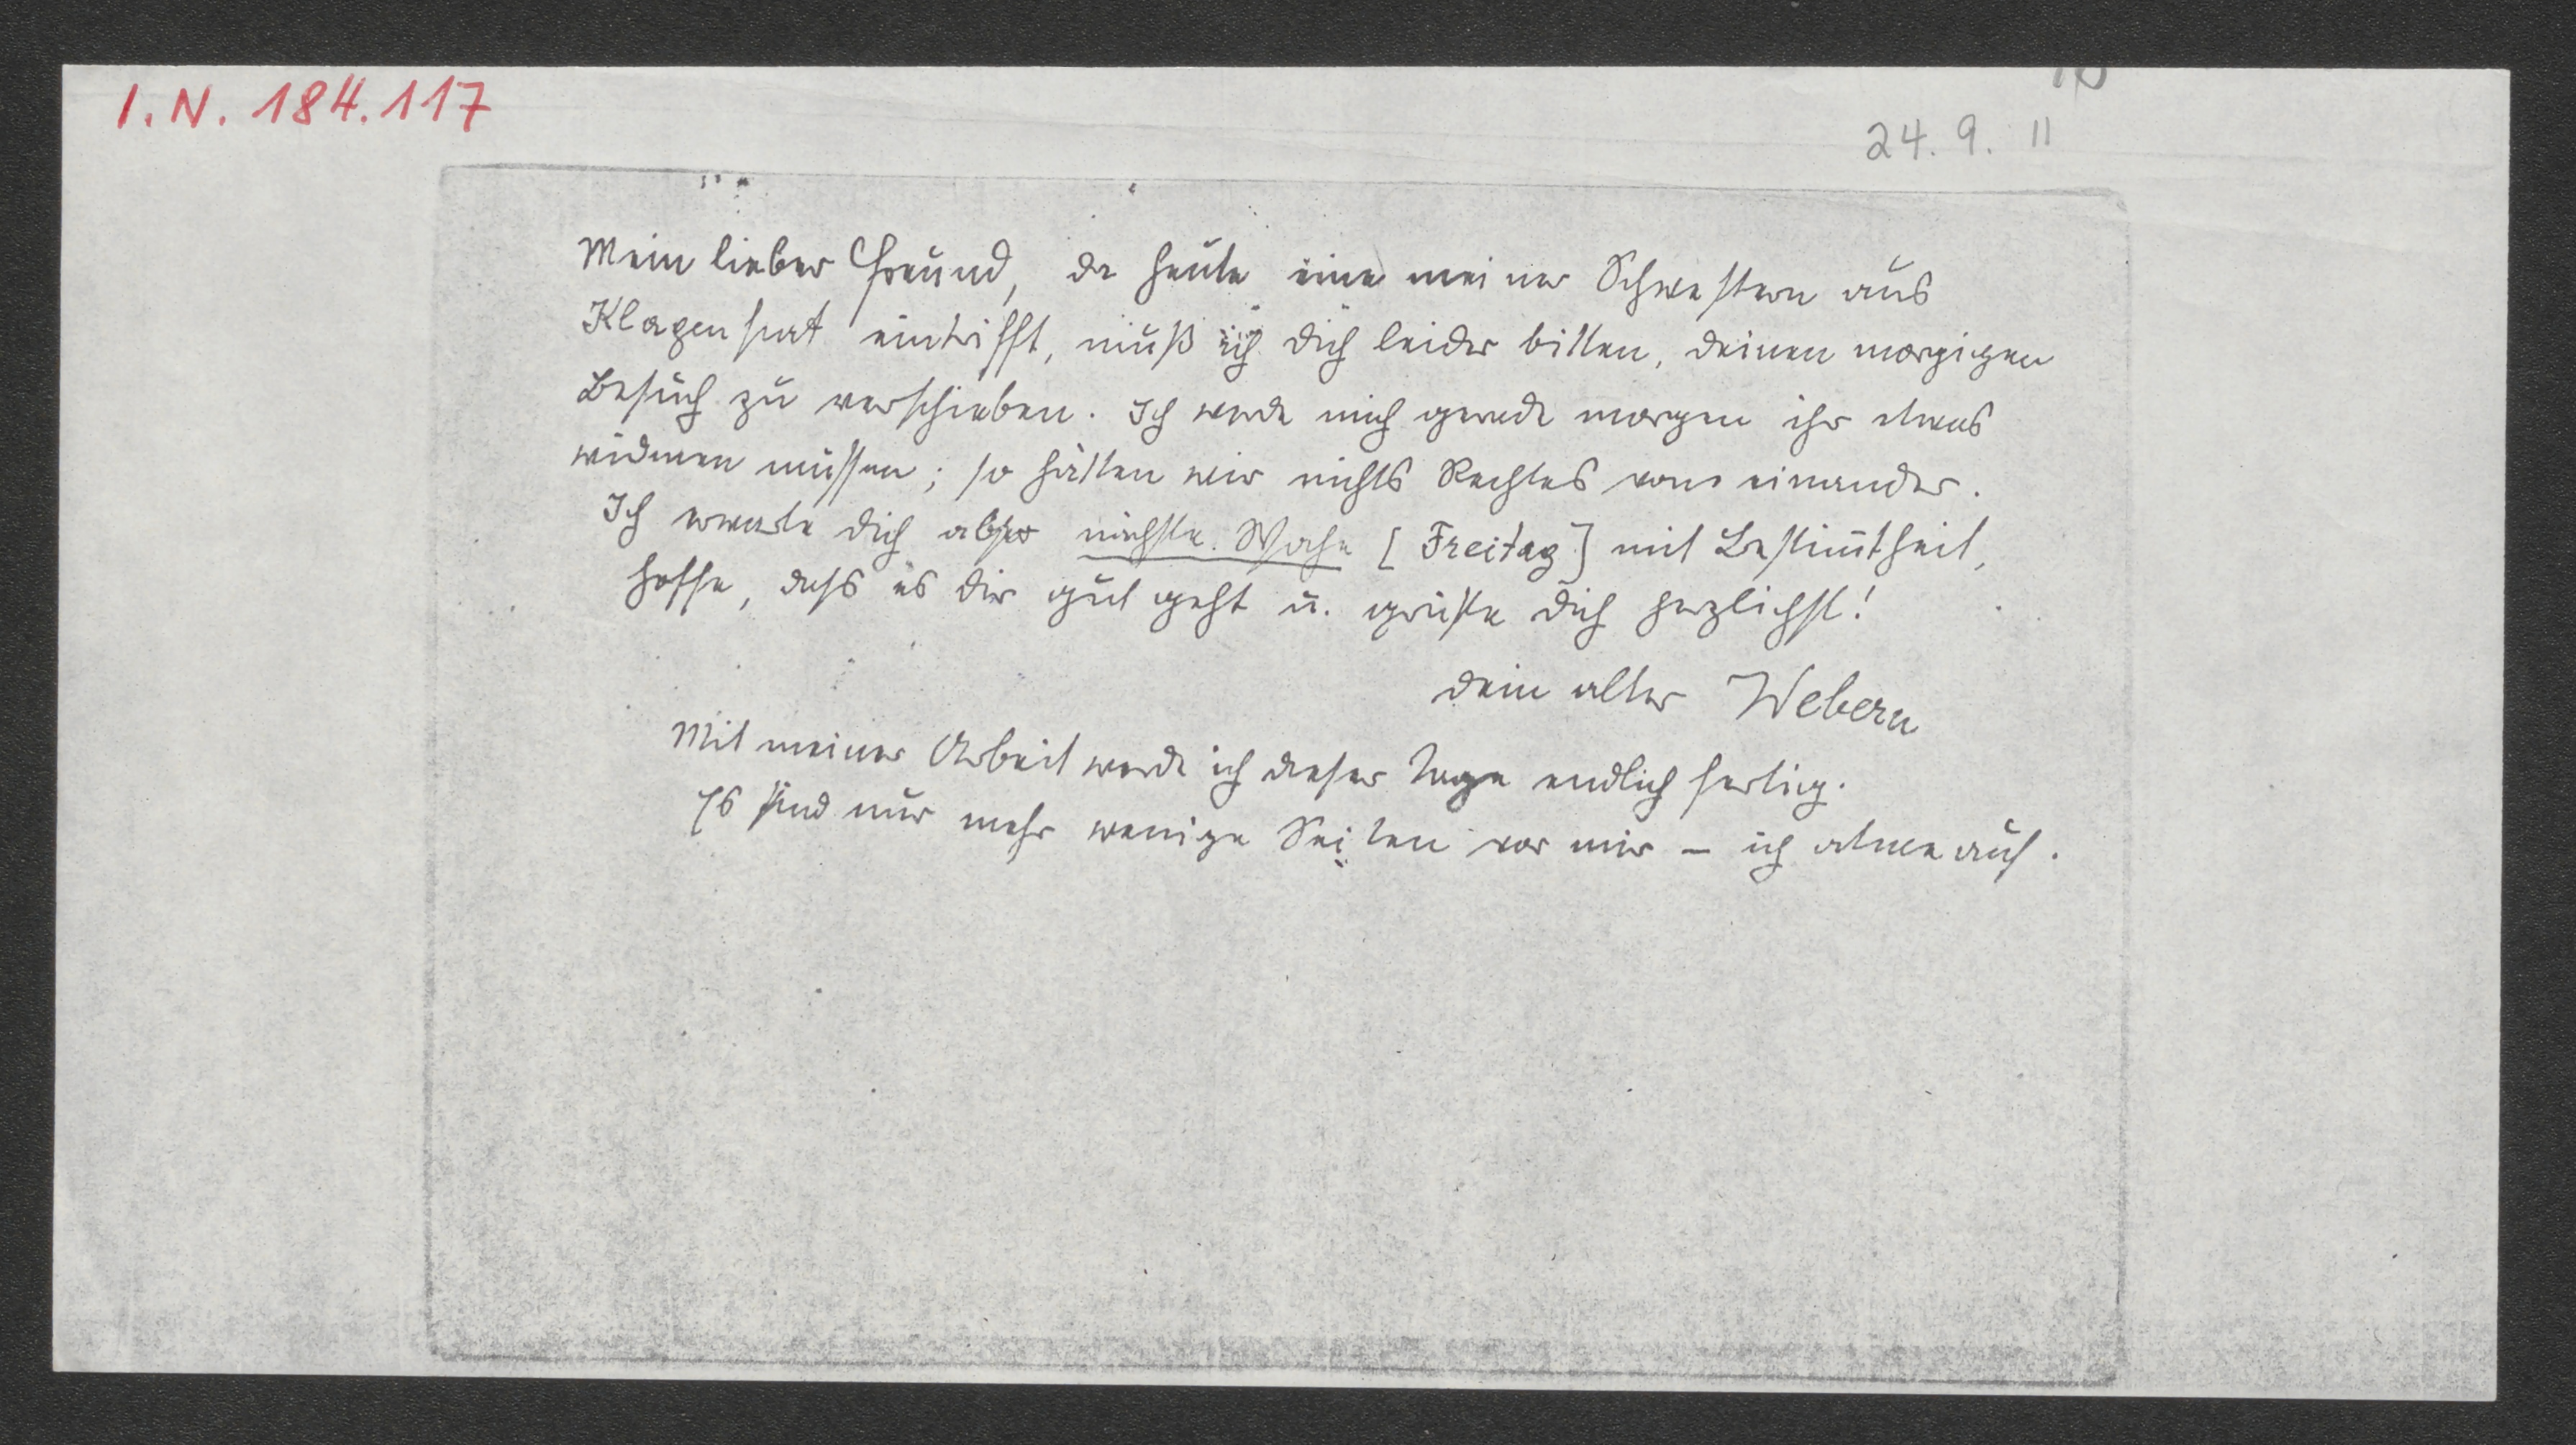 I.N. 184.117
24. 9. 11
Mein lieber Freund, da heute eine meiner Schwestern aus
Klagenfurt eintrifft, muß ich dich leider bitten, deinen morgigen
Besuch zu verschieben. Ich werde mich gerade morgen ihr etwas
widmen müssen; so hätten wir nichts Rechtes von einander.
Ich erwarte dich also nächste Woche [Freitag] mit Bestim̅theit,
hoffe, dass es dir gut geht u. grüße dich herzlichst!
dein alter Webern
Mit meiner Arbeit werde ich dieser Tage endlich fertig.
Es sind nur mehr wenige Seiten vor mir – ich atme auf.